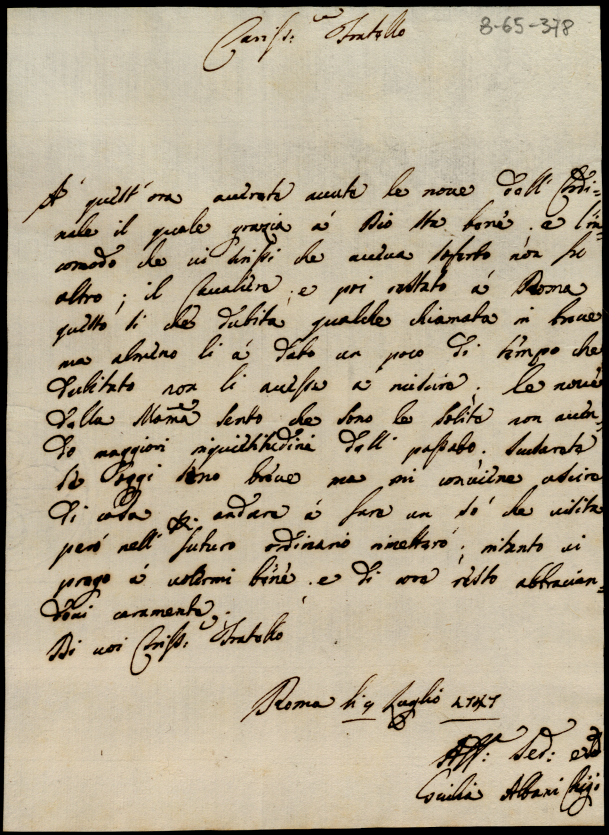 8-65-378
Cariss:mo Fratello
A quest'ora averete avute le nove dell Cardi=
nale il quale grazia á Dio sta bene. e l'in
comodo che vi scrissi che aveva soferto non fu
altro; il Cavaliere, e poi restato á Roma
questo si che dubita qualche chiamata in breve
ma almeno li á dato un poco di tempo che
dubitavo non li avesse a riuscire; le nove
della Mamá sento che sono le solite non aven=
do maggiori inquietitudini dell' passato. scusarete
se oggi sono breve ma mi conviene uscire
di casa p. andare á fare un só che visita
peró nell' futuro ordinario rimetteró; intanto vi
prego á volermi bene. e di core resto abbracian=
dovi caramente;
Di voi Cariss:mo Fratello
Roma li 9 Luglio 1747
Aff:ma Ser:
Cecilia Albani Chigi